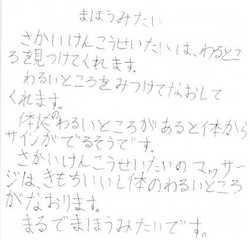 まほうみたい
さかいけんこうせいたいは、わるとこ
ろを見つけてくれます。
わるいところをみつけてなおして
くれます。
体のわるいところがあると体から
サインがでるそうです。
さかいけんこうせいたいのマッサー
ジは、きもちいいし体のわるいところ
がなおります。
まるでまほうみたいです。